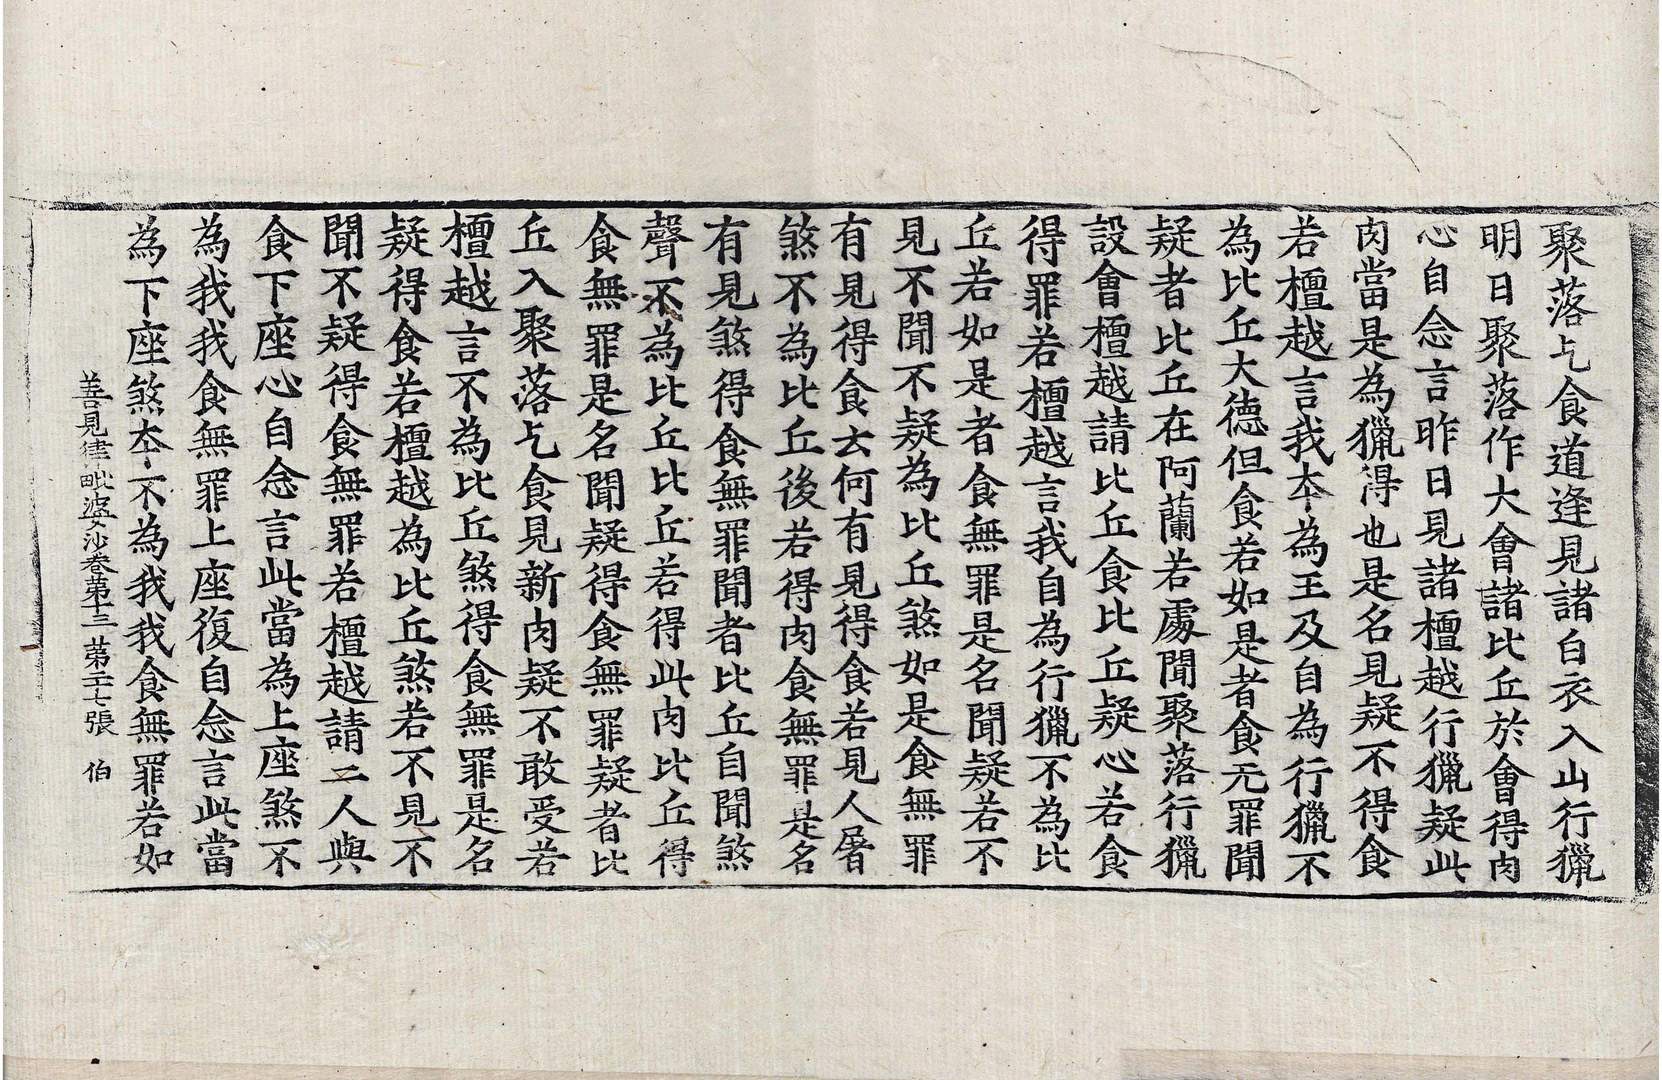 聚落乞食道逢見諸白衣入山行獵
明日聚落作大會諸比丘於會得肉
心自念言昨日見諸檀越行獵疑此
肉當是為獵得也是名見疑不得食
若檀越言我本為王及自為行獵不
為比丘大德但食若如是者食无罪聞
疑者比丘在阿蘭若處聞聚落行獵
設會檀越請比丘食比丘疑心若食
得罪若檀越言我自為行獵不為比
丘若如是者食無罪是名聞疑若不
見不聞不疑為比丘煞如是食無罪
有見得食云何有見得食若見人屠
煞不為比丘後若得肉食無罪是名
有見煞得食無罪聞者比丘自聞煞
聲不為比丘比丘若得此肉比丘得
食無罪是名聞疑得食無罪疑者比
丘入聚落乞食見新肉疑不敢受若
檀越言不為比丘煞得食無罪是名
疑得食若檀越為比丘煞若不見不
聞不疑得食無罪若檀越請二人與
食下座心自念言此當為上座煞不
為我我食無罪上座復自念言此當
為下座煞本不為我我食無罪若如
善見律毗婆沙卷第十三 第二十七張 伯